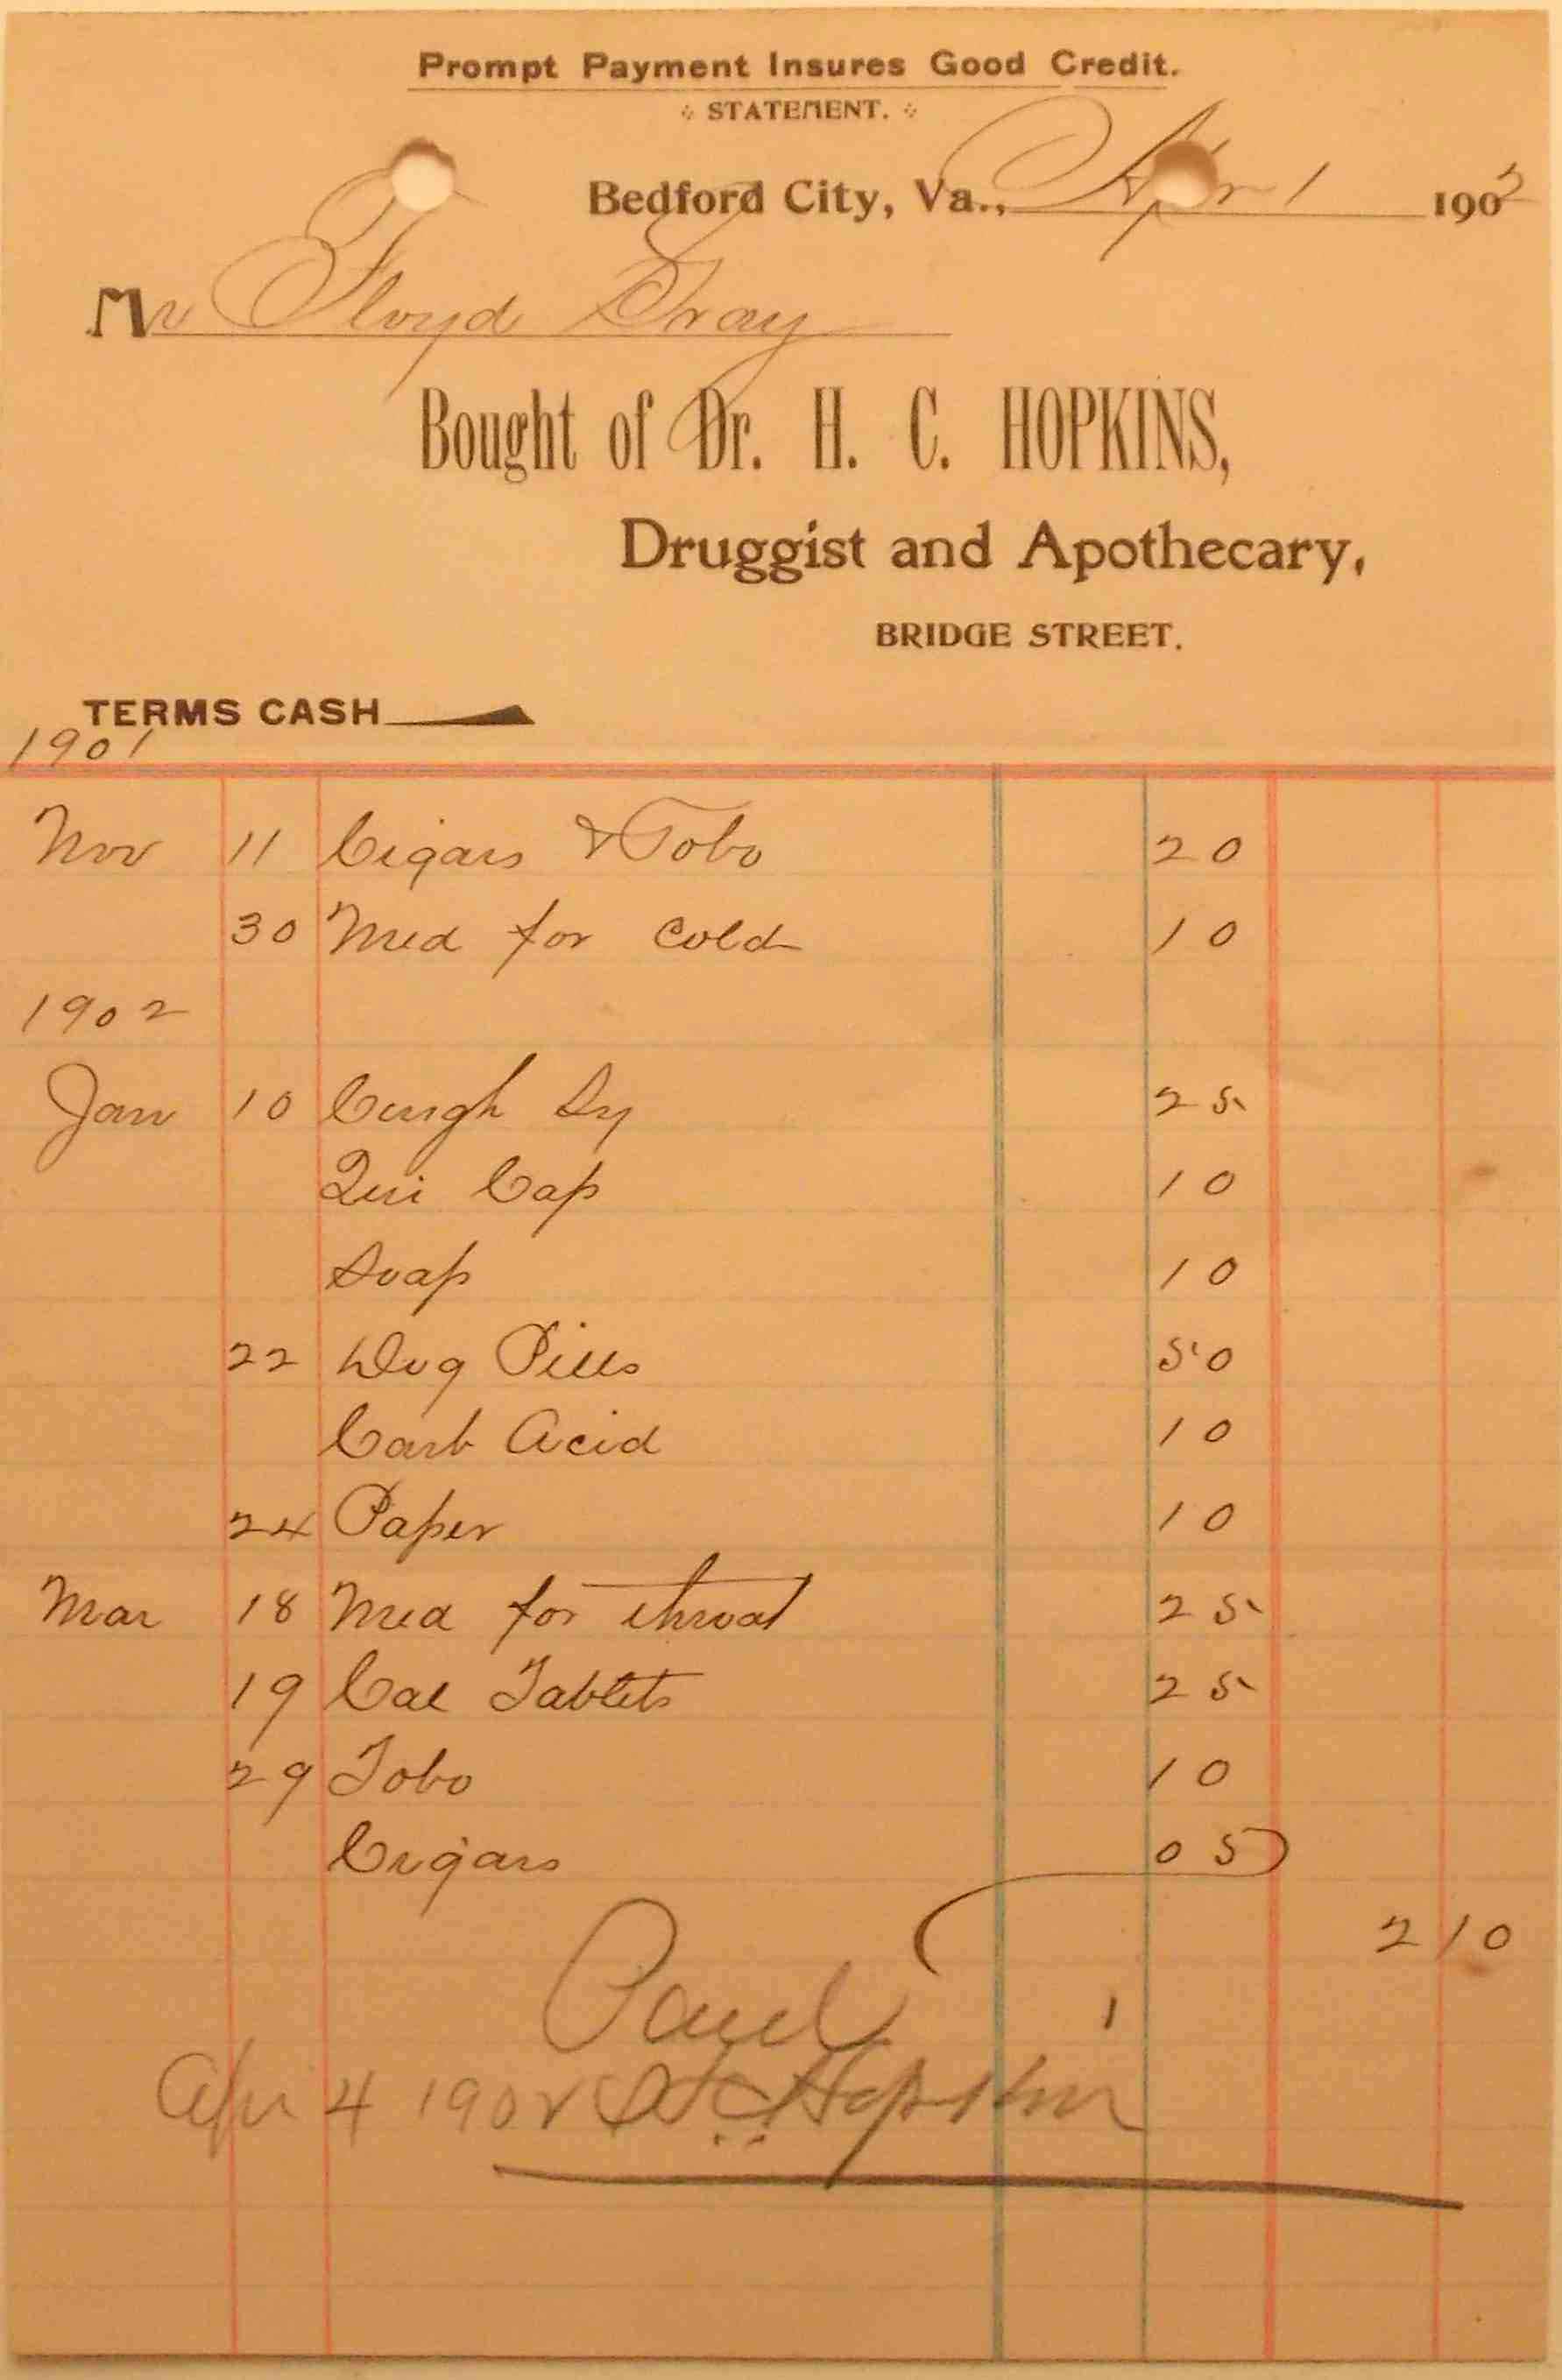 Prompt Payment Insures Good Credit.
STATEMENT.
Bedford City, Va., Apr 1 1902
Mr Floyd Gray
Bought of Dr. H. C. HOPKINS,
Druggist and Apothecary,
BRIDGE STREET.
TERMS CASH
1901
Nov 11 Cigars & Tobo 20
30 Med for Cold 10
1902
Jan 10 Cough Sy 25
Qui Cap 10
Soap 10
22 Dog Pills 50
Carb Acid 10
24 Paper 10
Mar 18 Med for throat 25
19 Cal Tablets 25
29 Tobo 10
Cigars 05
2 10
Paid
Apr 4 1902 Hopkins